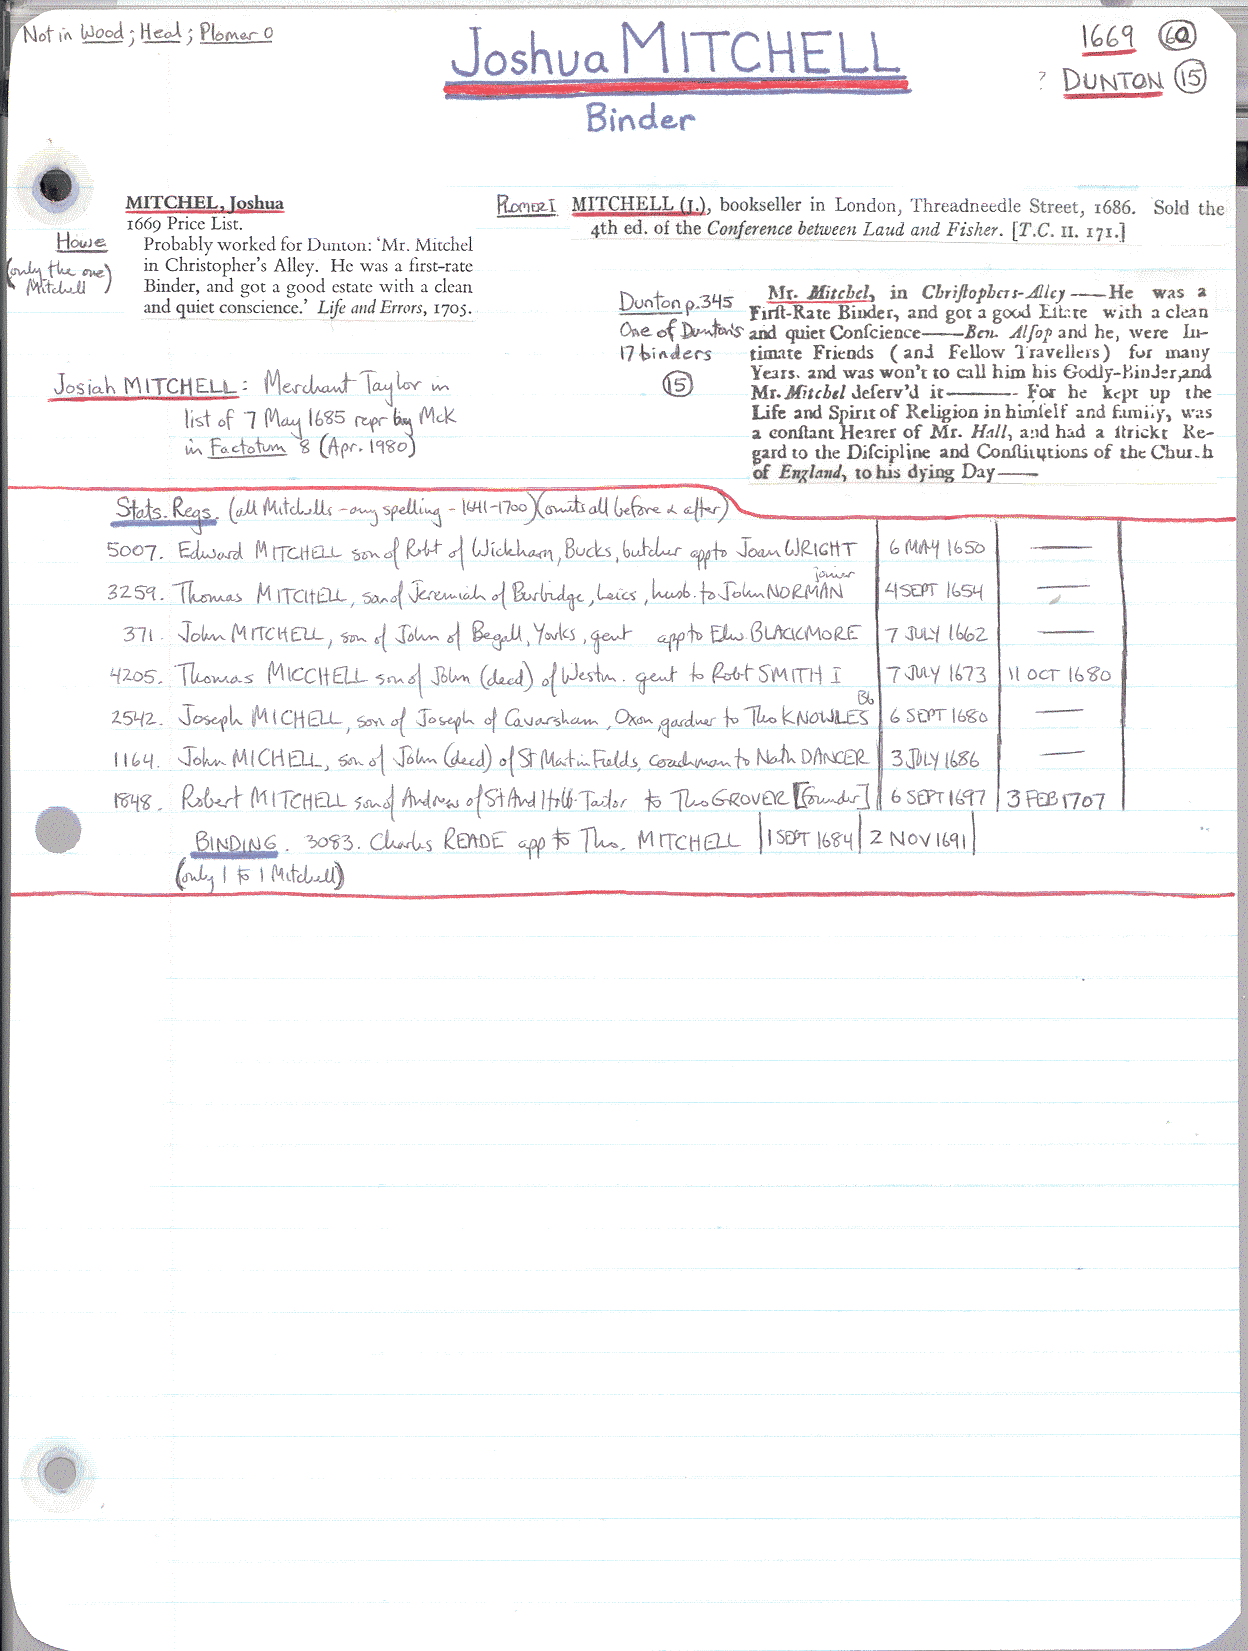 Not in Wood; Heal; Plomer O
Joshua MITCHELL
Binder
1669 60
? DUNTON 15
MITCHEL, Joshua
1669 Price List.
Probably worked for Dunton: ‘Mr. Mitchel
in Christopher's Alley. He was a first-rate
Binder, and got a good estate with a clean
and quiet conscience.’ Life and Errors, 1705.
Howe
(only the one
Mitchell)
PLOMER I MITCHELL (J.), bookseller in London, Threadneedle Street, 1686. Sold the
4th ed. of the Conference between Laud and Fisher. [T.C. II. 171.]
Dunton p.345
One of Dunton's
17 binders
15
Mr. Mitchel, in Christophers-Alley——He was a
Firſt-Rate Binder, and got a good Eſtate with a clean
and quiet Conſcience——Ben. Alſop and he, were In-
timate Friends (and Fellow Travellers) for many
Years. and was won't to call him his Godly-Binder, and
Mr. Mitchel deſerv'd it———. For he kept up the
Life and Spirit of Religion in himſelf and family, was
a conſtant Hearer of Mr. Hall, and had a ſtrickt Re-
gard to the Diſcipline and Conſtitutions of the Church
of England, to his dying Day——
Josiah MITCHELL: Merchant Taylor in
list of 7 May 1685 repr by McK
in Factotum 8 (Apr. 1980)
Stats. Regs. (all Mitchells - any spelling - 1641-1700) (omits all before & after)
5007. Edward MITCHELL son of Robt of Wickham, Bucks, butcher app to Joan WRIGHT 6 MAY 1650 —
3259. Thomas MITCHELL, son of Jeremiah of Burbidge, Leics, husb. to John NORMAN joiner 4 SEPT 1654 —
371. John MITCHELL, son of John of Begall, Yorks, gent app to Edw. BLACKMORE 7 JULY 1662 —
4205. Thomas MICCHELL son of John (decd) of Westm. gent to Robt SMITH I 7 JULY 1673 11 OCT 1680
2542. Joseph MICHELL, son of Joseph of Cavarsham, Oxon, gardner to Tho KNOWLES Bb 6 SEPT 1680 —
1164. John MICHELL, son of John (decd) of St Martin Fields, coachman to Nath DANCER 3 JULY 1686 —
1848. Robert MITCHELL son of Andrew of St And Holb. Tailor to Tho GROVER [founder] 6 SEPT 1697 3 FEB 1707
BINDING. 3083. Charles READE app to Tho. MITCHELL 1 SEPT 1684 2 NOV 1691
(only 1 to 1 Mitchell)